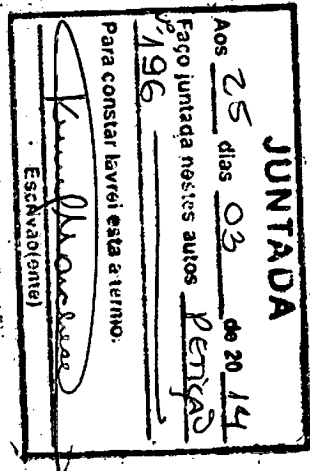 JUNTADA
Aos 25 dias 03 de 20 14
Faço juntada nestes autos PETIÇÃO
Nº 196
Para constar lavrei esta a termo.
Escrivão(ente)